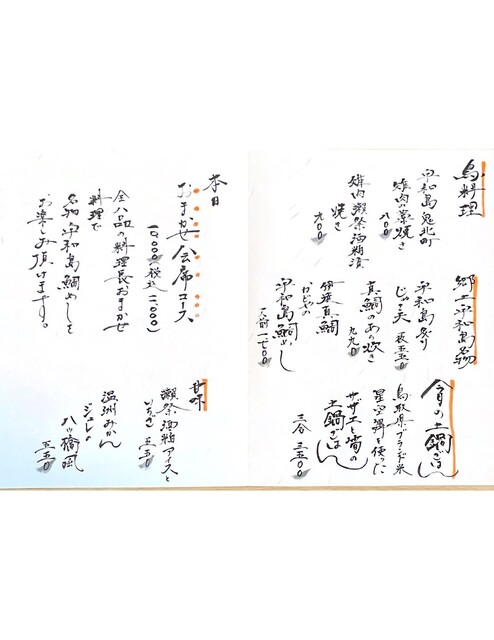 鳥料理
宇和島鬼北町
雉肉の藁焼き
八〇〇
雉肉獺祭酒粕漬
焼き
九〇〇
郷土宇和島名物
宇和島炙り
じゃこ天 一枚五五〇
真鯛のあら炊き
九九〇
伊予真鯛
かどやの
宇和島鯛めし
一人前 一七〇〇
今月の土鍋ごはん
鳥取県ブランド米
星空舞を使った
サザエと筍の
土鍋ごはん
三合 三五〇〇
本日
おまかせ会席コース
一〇、〇〇〇（税込一一、〇〇〇）
全八品の料理長おまかせ
料理で
名物宇和島鯛めしを
お楽しみ頂けます。
甘味
獺祭酒粕アイスと
いちご 五五〇
温州みかん
ジュレの
八ツ橋風
五五〇